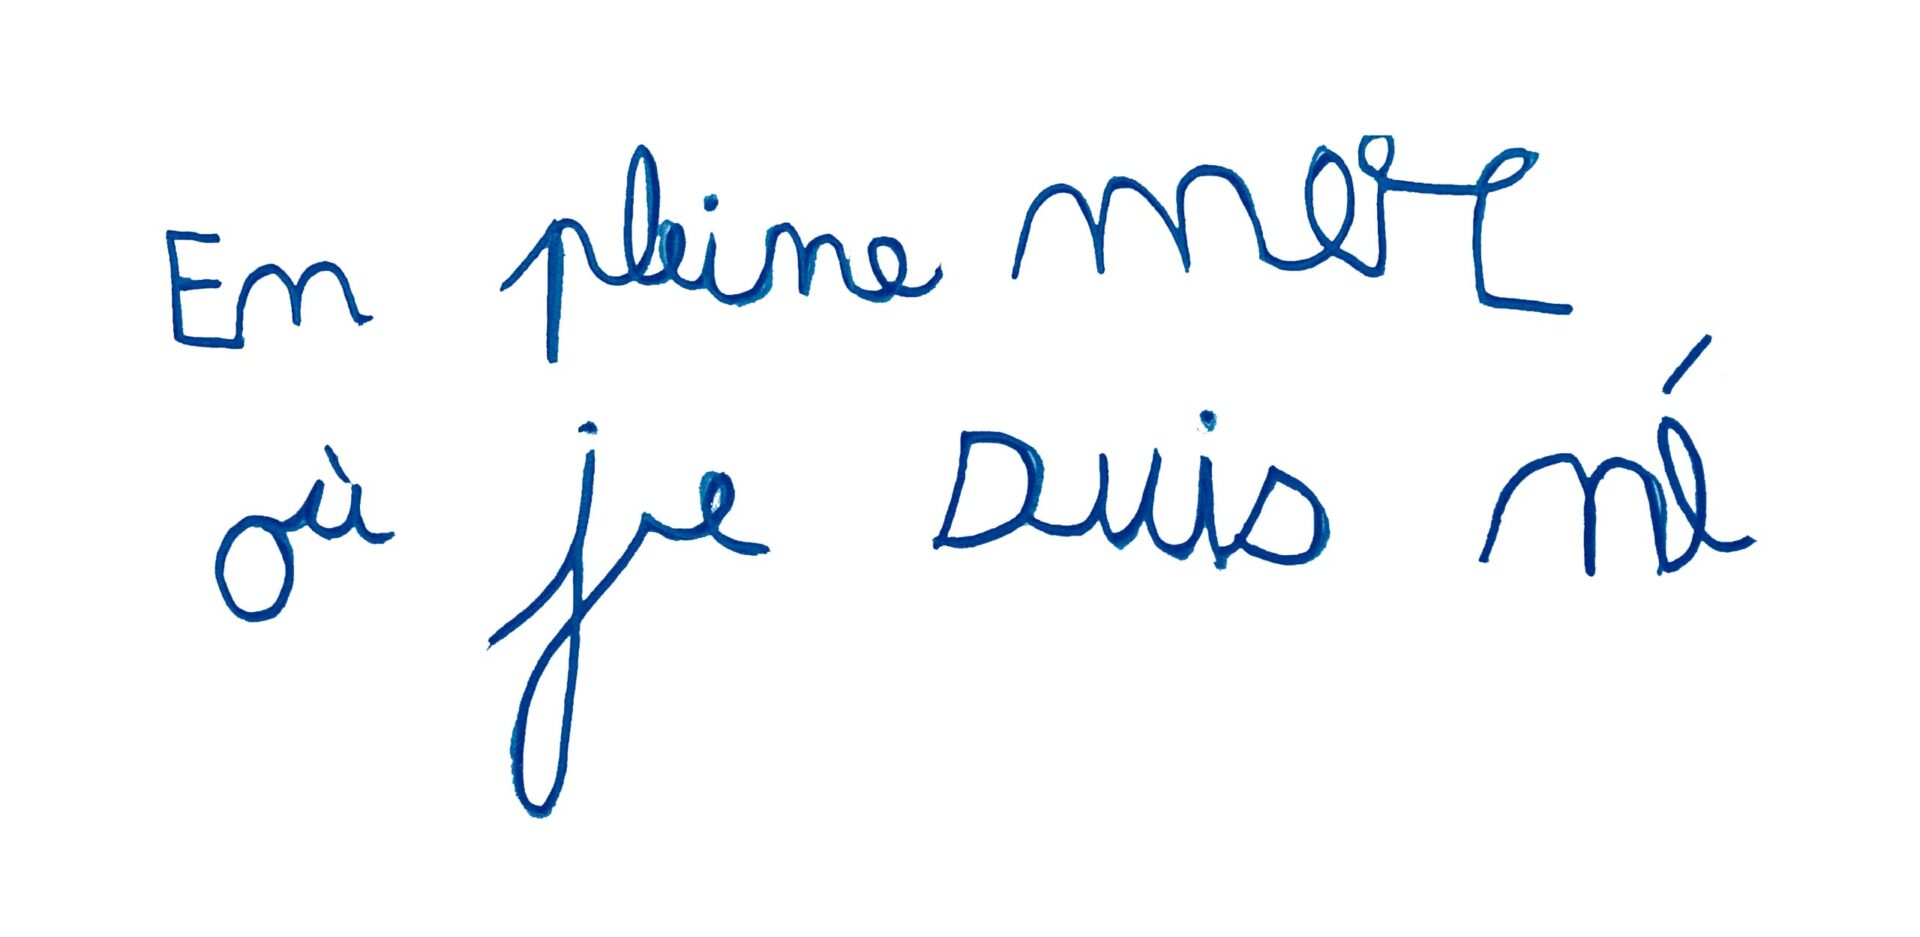 En pleine mer
où je suis né